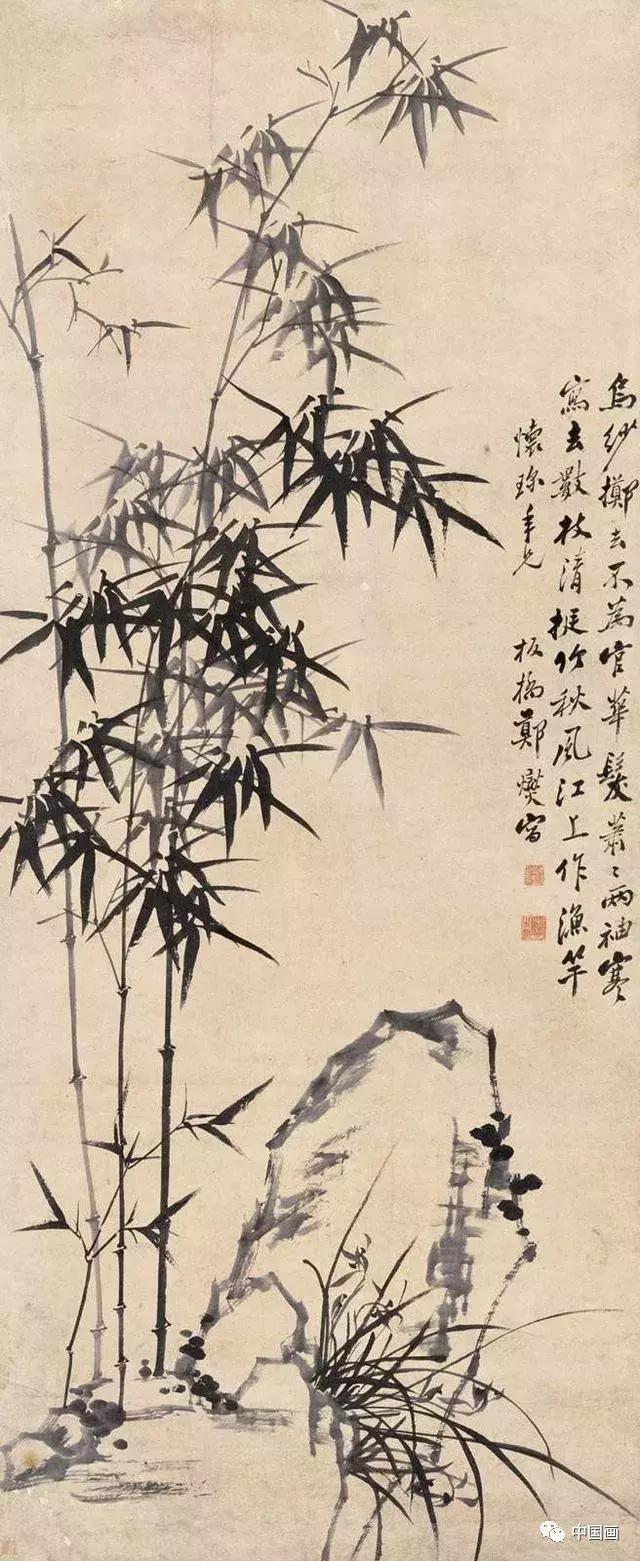 烏紗擲去不為官華髮蕭〻兩袖寒
寫去數枝清挺竹秋風江上作漁竿
懷珍年兄 板橋鄭燮寫
中国画